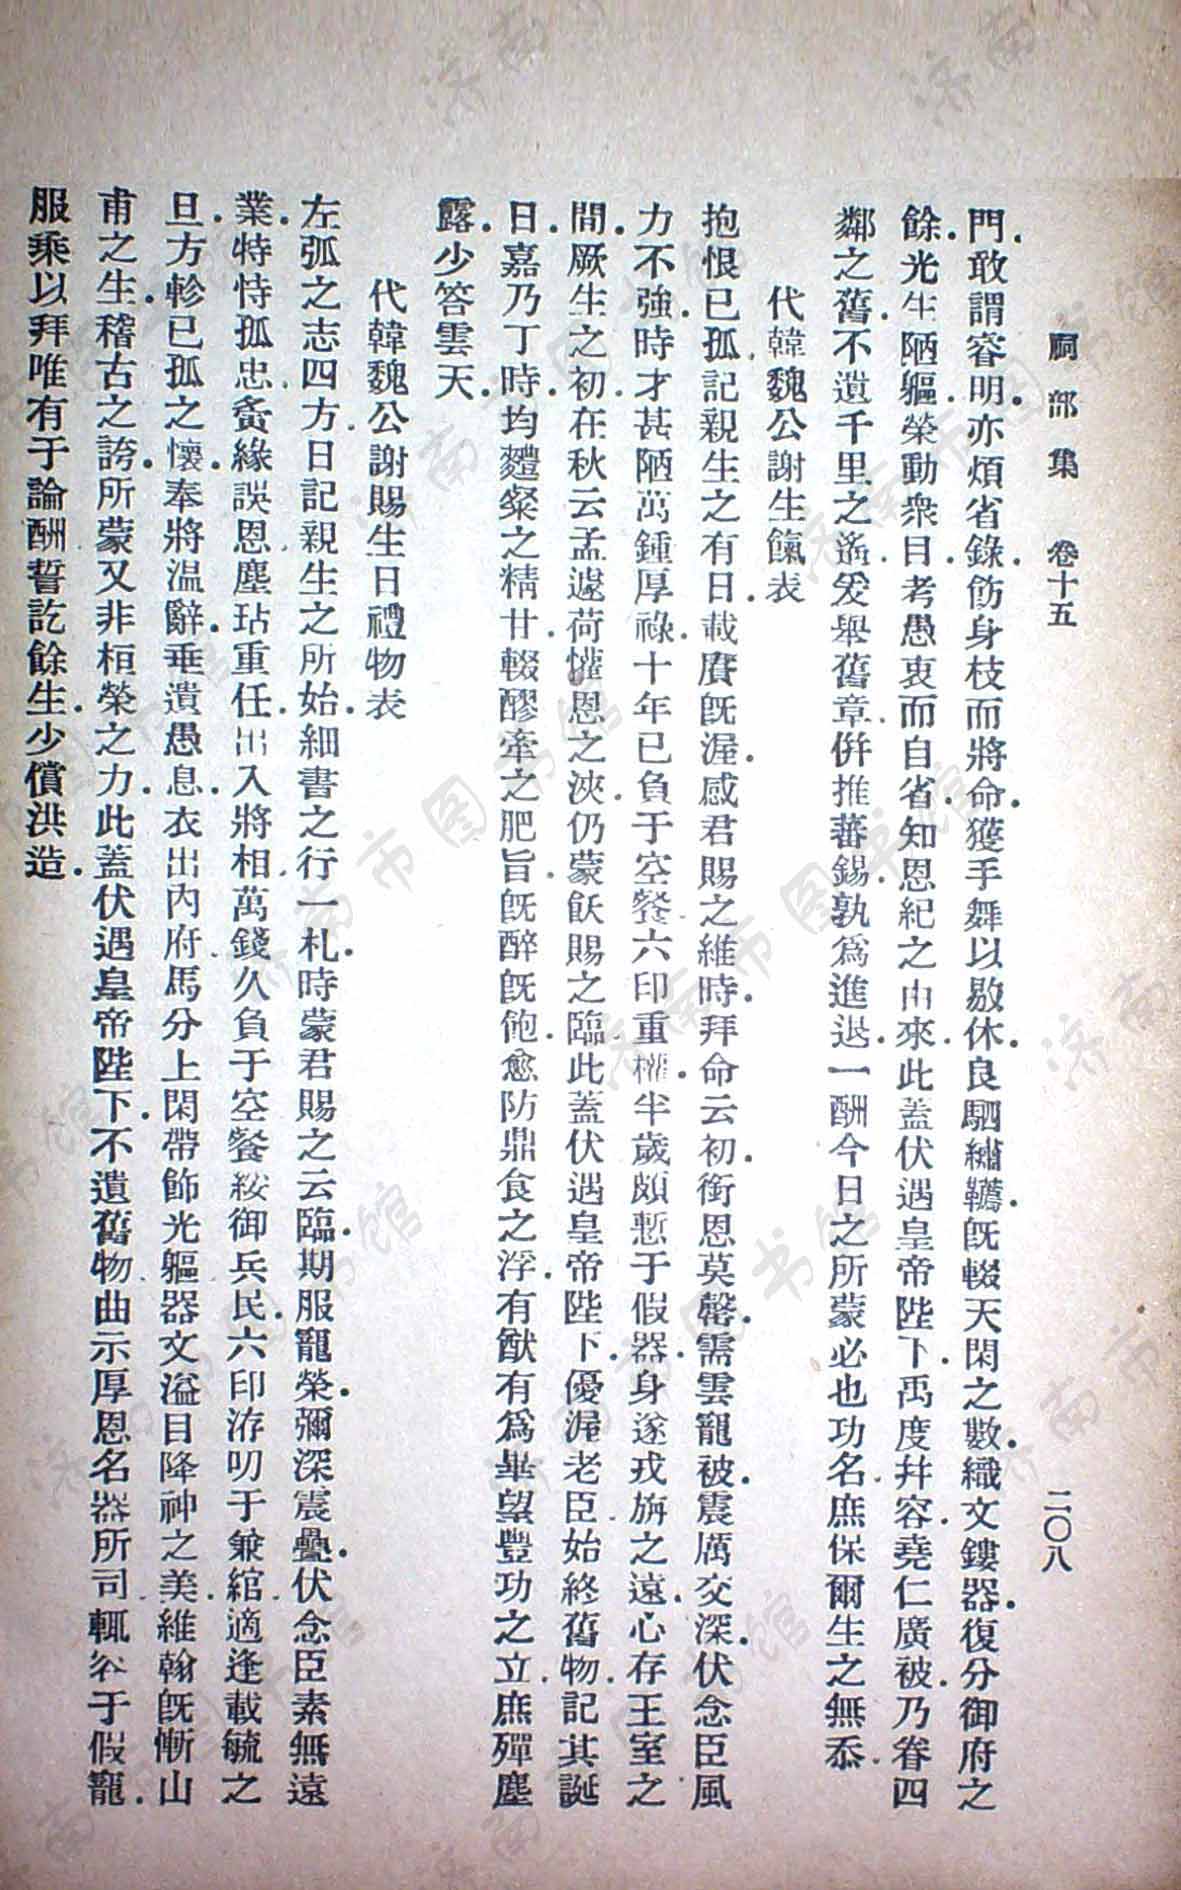 祠部集 卷十五 二〇八
門.敢謂睿明.亦煩省錄.飭身枝而將命.獲手舞以敭休.良駟繡韉.旣輟天閑之數.織文鏤器.復分御府之
餘.光生陋軀.榮動衆目.考愚衷而自省.知恩紀之由來.此蓋伏遇皇帝陛下.禹度幷容.堯仁廣被.乃眷四
鄰之舊.不遺千里之遙.爰舉舊章.倂推蕃錫.孰爲進退.一酬今日之所蒙.必也功名.庶保爾生之無忝.
代韓魏公謝生餼表
抱恨已孤.記親生之有日.載賡旣渥.感君賜之維時.拜命云初.銜恩莫罄.需雲寵被.震厲交深.伏念臣風
力不強.時才甚陋.萬鍾厚祿.十年已負于空餐.六印重權.半歲頗慙于假器.身遂戎旃之遠.心存王室之
間.厥生之初.在秋云孟.遽荷懽恩之浹.仍蒙飫賜之臨.此蓋伏遇皇帝陛下.優渥老臣.始終舊物.記其誕
日.嘉乃丁時.均麴糵之精甘.輟醪牽之肥旨.旣醉旣飽.愈防鼎食之浮.有猷有爲.畢望豐功之立.庶殫塵
露.少答雲天.
代韓魏公謝賜生日禮物表
左弧之志四方.日記親生之所始.細書之行一札.時蒙君賜之云臨.期服寵榮.彌深震疊.伏念臣素無遠
業.特恃孤忠.夤緣誤恩.塵玷重任.出入將相.萬錢久負于空餐.綏御兵民.六印洊叨于兼綰.適逢載毓之
旦.方軫已孤之懷.奉將溫辭.垂遺愚息.衣出內府.馬分上閑.帶飾光軀.器文溢目.降神之美.維翰旣慚山
甫之生.稽古之誇.所蒙又非桓榮之力.此蓋伏遇皇帝陛下.不遺舊物.曲示厚恩.名器所司.輒容于假寵.
服乘以拜.唯有于論酬.誓訖餘生.少償洪造.